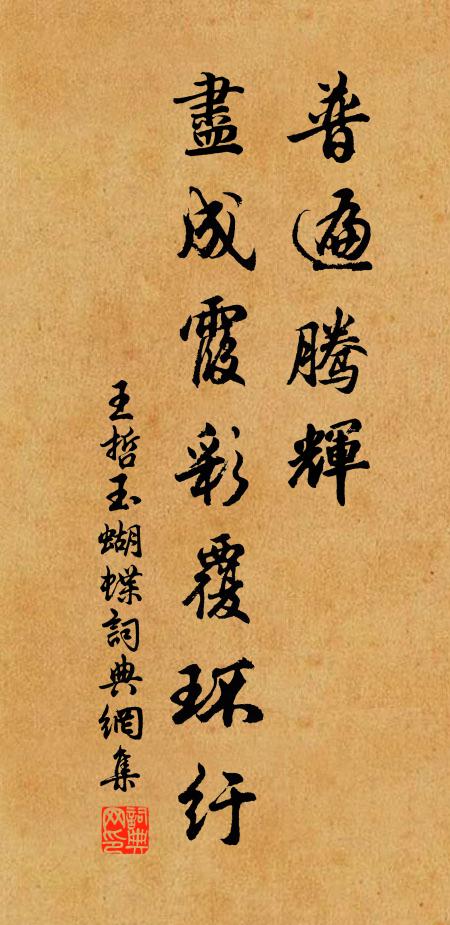 普遍騰輝
盡成霞彩覆環紆
王哲玉蝴蝶詞典網集
詞典網印